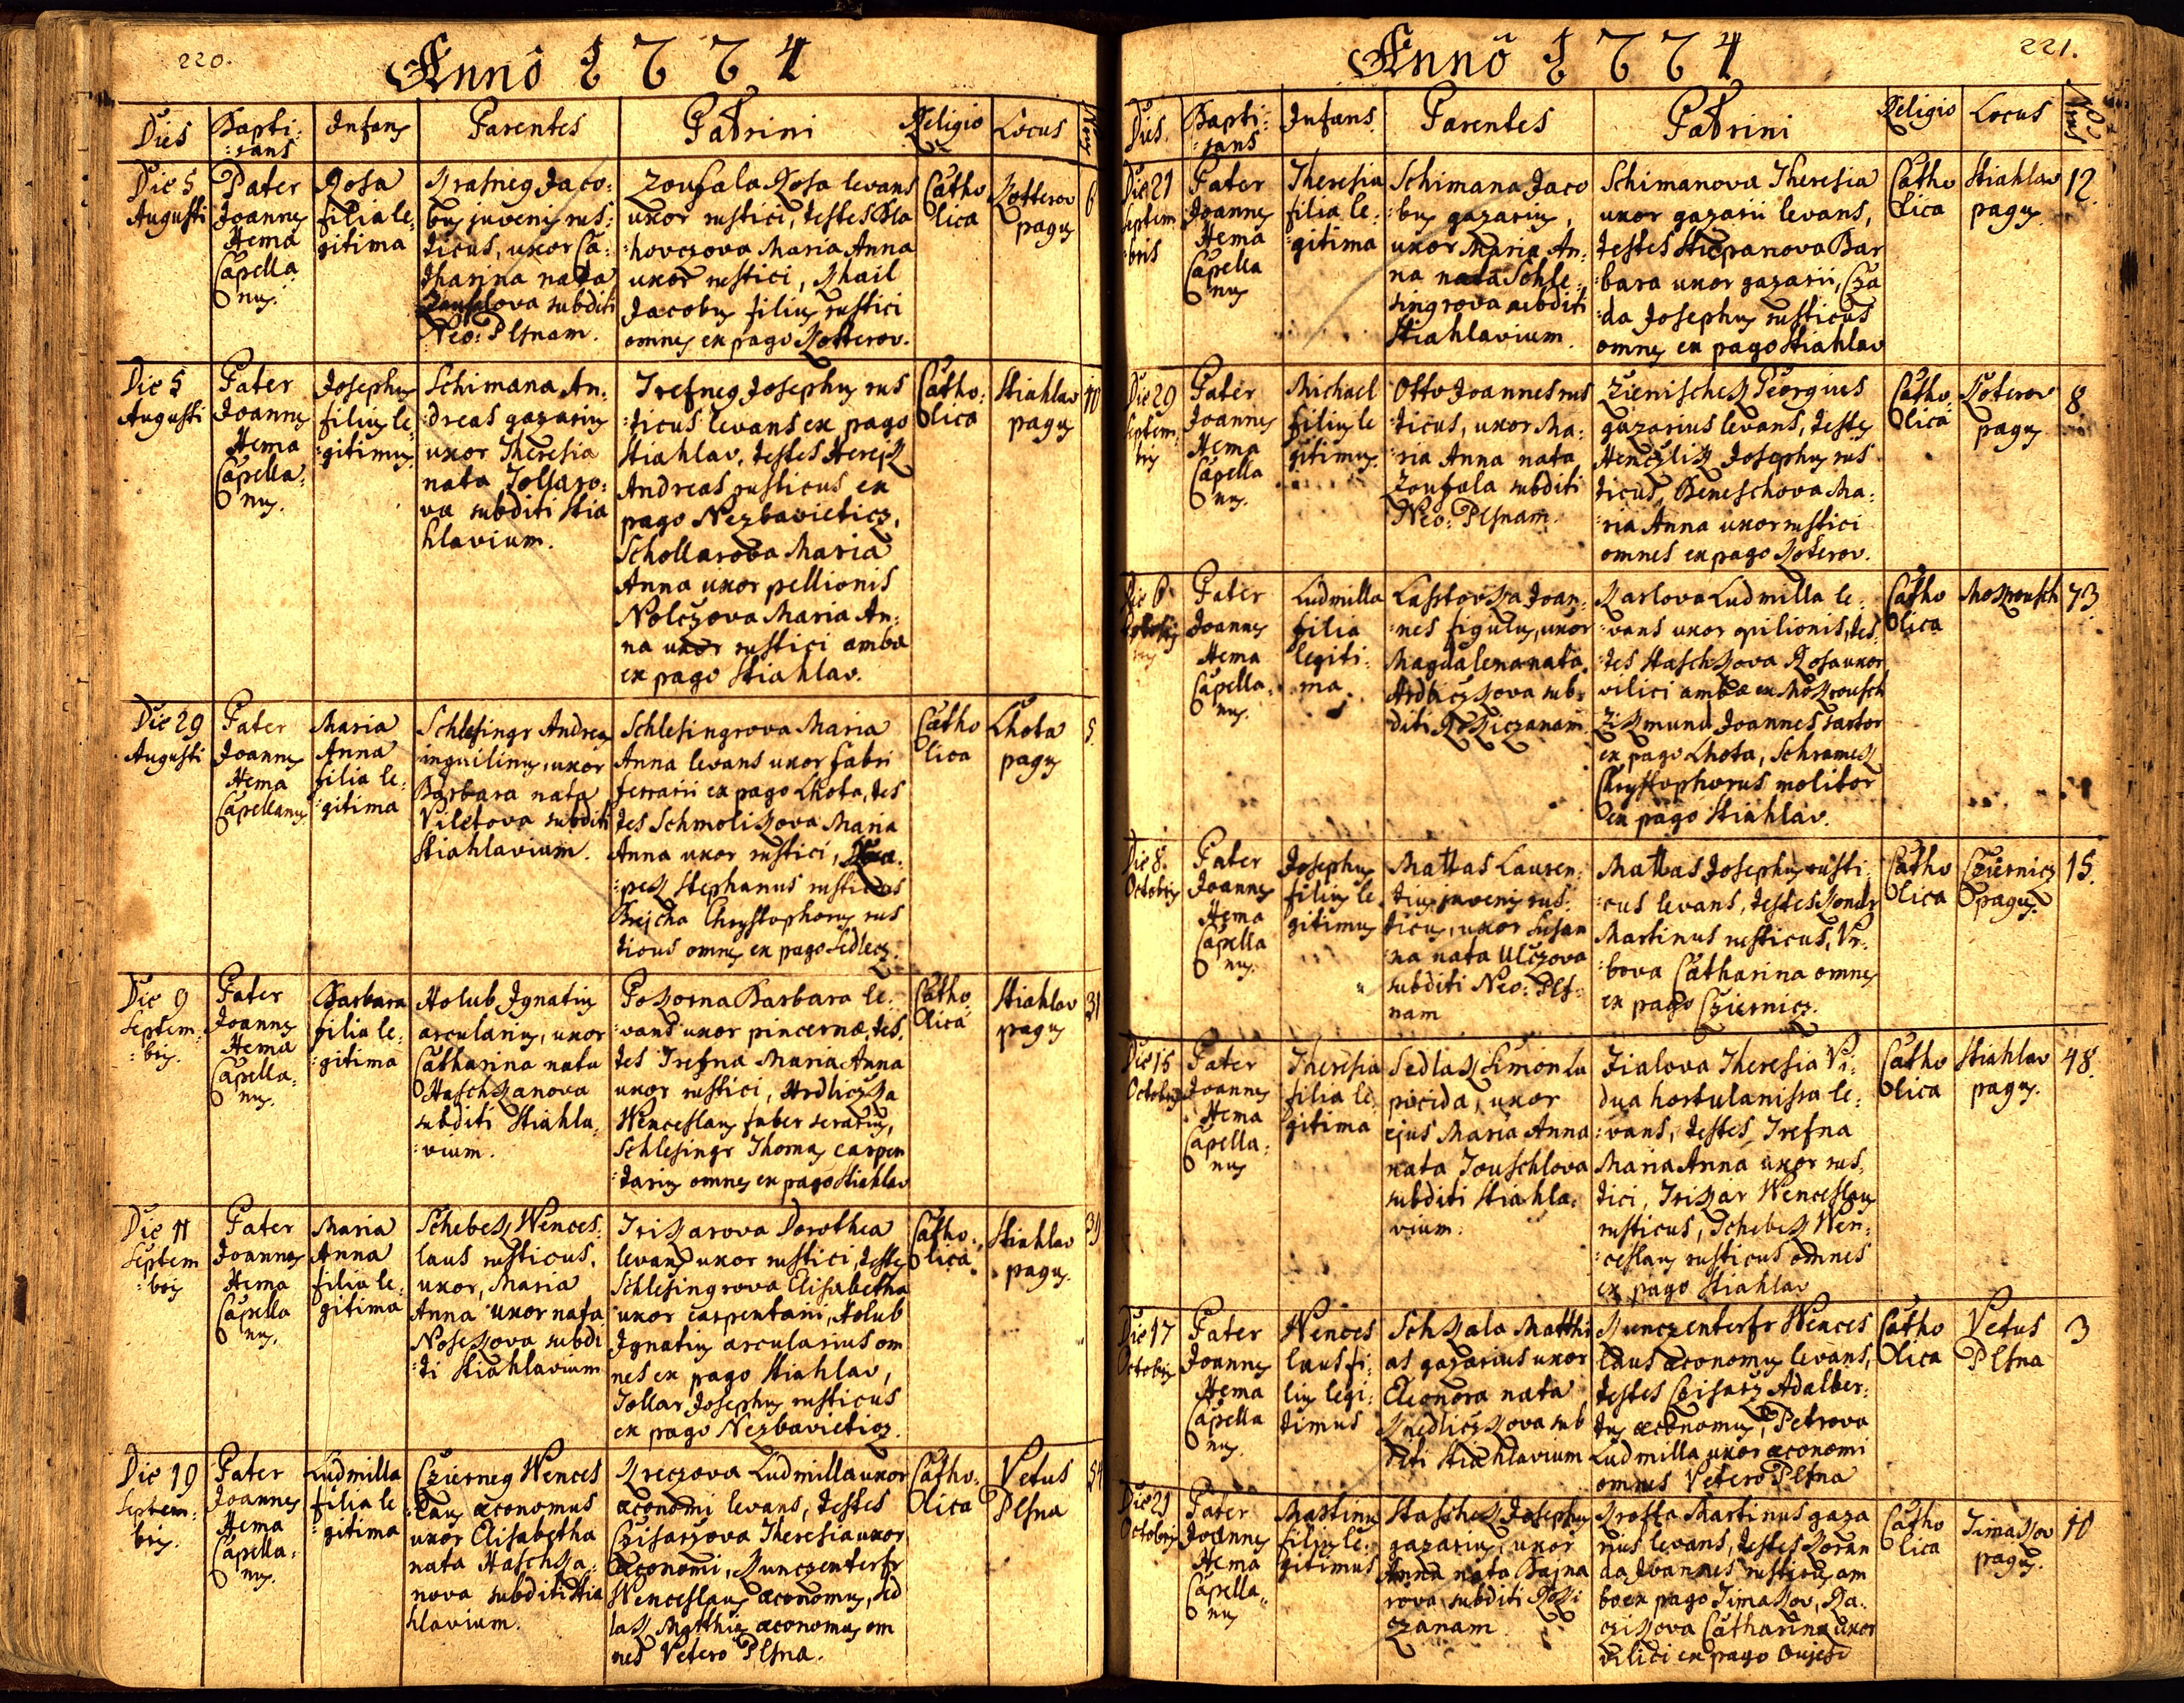 220.
Anno 1774
Dies
Bapti:
:zans
Infans
Parentes
Patrini
Religio
Locus
Die 5
Augusti
Pater
Joannes
Hema
Capella
nus.
Rosa
filia le:
gitima
Krasneg Jaco:
bus juvenis rus:
ticus, uxor Ca:
tharina nata
subditi
Neo: Plsnam.
Zoufala Rosa levans
uxor rustici, testes Bla
:hovczova Maria Anna
uxor rustici, Khail
Jacobus filius rustici
omnes ex pago Kotterov.
Catho
lica
Kotterov
pagus
6
Die 5
Augusti
Pater
Joannes
Hema
Capella:
nus.
Josephus
filius le:
:gitimus
Schimana An:
:dreas gazarius
uxor Theresia
nata Tollaro:
va subditi Stia
hlavium.
Trefneg Josephus rus
:ticus levans ex pago
Stiahlav, testes Herejk
Andreas rusticus ex
pago Nezbavieticz,
Schollarova Maria
Anna uxor pellionis
Nolczova Maria An:
na uxor rustici ambæ
ex pago Stiahlav.
Catho:
lica
Stiahlav
pagus
10
Die 29
Augusti
Pater
Joannes
Hema
Capellanus
Maria
Anna
filia le:
:gitima
Schlesingr Andreas
inquilinus, uxor
Barbara nata
Viletova subditi
Stiahlavium.
Schlesingrova Maria
Anna levans uxor fabri
ferrarii ex pago Lhota, tes
tes Schmolikova Maria
Anna uxor rustici,
:pek Stephanus rusticus
Brejcha Chrystophorus rus
ticus omnes ex pago Sedlecz.
Catho
lica
Lhota
pagus
5.
Die 9
Septem:
:bris.
Pater
Joannes
Hema
Capella:
nus.
Barbara
filia le:
:gitima
Holub Ignatius
arcularius, uxor
Catharina nata
Haschkanova
subditi Stiahla:
:vium.
Pokorna Barbara le:
:vans uxor pincernæ, tes:
tes Trefna Maria Anna
uxor rustici, Hrdliczka
Wenceslaus faber serarius,
Schlesingr Thomas carpen
:tarius omnes ex pago Stiahlav
Catho
lica
Stiahlav
pagus
31
Die 11
Septem
:bris
Pater
Joannes
Hema
Capella
nus.
Maria
Anna
filia le:
gitima
Schebek Wences:
laus rusticus,
uxor, Maria
Anna uxor nata
Nosekova subdi
:ti Stiahlavium
Triskarova Dorothea
levans uxor rustici, testes
Schlesingrova Elisabetha
uxor carpentarii, Holub
Ignatius arcularius om
nes ex pago Stiahlav,
Tollar Josephus rusticus
ex pago Nezbavieticz.
Catho:
lica
Stiahlav
pagus.
39
Die 19
Septem:
bris.
Pater
Joannes
Hema
Capella:
nus.
Ludmilla
filia le
:gitima
Czierneg Wences
:laus œconomus
uxor Elisabetha
nata Haschka:
nova subditi Stia
hlavium.
Kreczova Ludmilla uxor
œconomi levans, testes
Czisarzova Theresia uxor
œconomi, Kunczenterfr
Wenceslaus œconomus, Sed
lak Matthias œconomus om
nes Vetero Plsna.
Catho:
lica
Vetus
Plsna
54
Anno 1774
221.
Dies.
Bapti:
:zans
Infans.
Parentes
Patrini
Religio
Locus
Nrus
Die 21
Septem
:bris
Pater
Joannes
Hema
Capella
nus
Theresia
filia le:
:gitima
Schimana Jaco
:bus gazarius,
uxor Maria An:
na nata Schle:
singrova subditi
Stiahlavium.
Schimanova Theresia
uxor gazarii levans,
testes Stiepanova Bar
:bara uxor gazarii, Cza
:da Josephus rusticus
omnes ex pago Stiahlav
Catho
lica
Stiahlav
pagus.
12.
Die 29
Septem:
bris
Pater
Joannes
Hema
Capella
nus.
Michael
filius le
gitimus.
Otto Joannes rus
ticus, uxor Ma:
ria Anna nata
Zoufala subditi
Neo: Plsnam.
Zienischek Georgius
gazarius levans, testes
Henczlik Josephus rus
ticus, Beneschova Ma:
:ria Anna uxor rustici
omnes ex pago Koterov.
Catho
lica
Koterov
pagus
8
Die 6
Pater
Joannes
Hema
Capella:
nus.
Ludmilla
filia
legiti:
ma.
Lasstovka Joan:
:nes figulus, uxor
Magdalena nata
Hrdliczkova sub:
diti Rokiczanam
Karlova Ludmilla le:
:vans uxor opilionis, tes
:tes Staschkova Rosa uxor
vilici ambæ ex Mokrousch
Zikmund Joannes sartor
ex pago Lhota, Schramek
Chrystophorus molitor
ex pago Stiahlav.
Catho
lica
Mokrousch
73
Die 8.
Octobris
Pater
Joannes
Hema
Capella
nus.
Josephus
filius le
gitimus
Mattas Lauren:
tius juvenis rus:
ticus, uxor Susan
:na nata Ulczova
subditi Neo: Pls:
nam
Mattas Josephus rusti:
:cus levans, testes Kondr
Martinus rusticus, Vr:
:bova Catharina omnes
ex pago Cziernicz.
Catho
lica
Cziernicz
pagus.
15.
Die 15
Octobris
Pater
Joannes
Hema
Capella:
nus
Theresia
filia le
gitima
Sedlak Simon La
picida, uxor
ejus Maria Anna
nata Touschlova
subditi Stiahla:
vium.
Fialova Theresia Vi:
dua hortulanissa le:
:vans, testes Trefna
Maria Anna uxor rus:
tici, Triskar Wenceslaus
rusticus, Schebek Wen:
:ceslaus rusticus omnes
ex pago Stiahlav
Catho
lica
Stiahlav
pagus.
48.
Die 17
Octobris
Pater
Joannes
Hema
Capella
nus.
Wences
laus fi:
lius legi:
timus
Schkala Matthi
as gazarius uxor
Eleonora nata
Knedliczkova sub
diti Stiahlavium
Kunczenterfr Wences
laus œconomus levans,
testes Czisarz Adalber:
tus œconomus, Petrova
Ludmilla uxor œconomi
omnes Vetero Plsna
Catho
lica
Vetus
Plsna
3
Die 21
Octobris
Pater
Joannes
Hema
Capella:
nus
Martinus
filius le:
gitimus
Staschek Josephus
gazarius, uxor
Anna nata Bajna
rova subditi Roki
czanam
Krotta Martinus gaza
rius levans, testes Koran
da Joannes rusticus am
bo ex pago Timakov, Ra:
czikova Catharina uxor
vilici ex pago Oujesd
Catho
lica
Timakov
pagus.
10